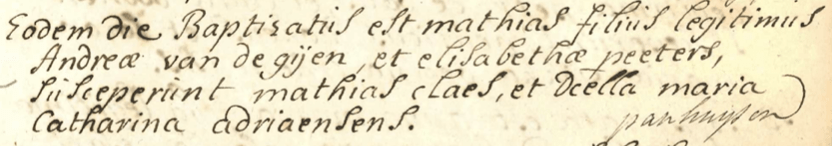 Eodem die Baptizatus est mathias filius legitimus
Andreæ van de gijen, et elisabethæ peeters,
susceperunt mathias claes, et Dcella maria
Catharina adriaensens.